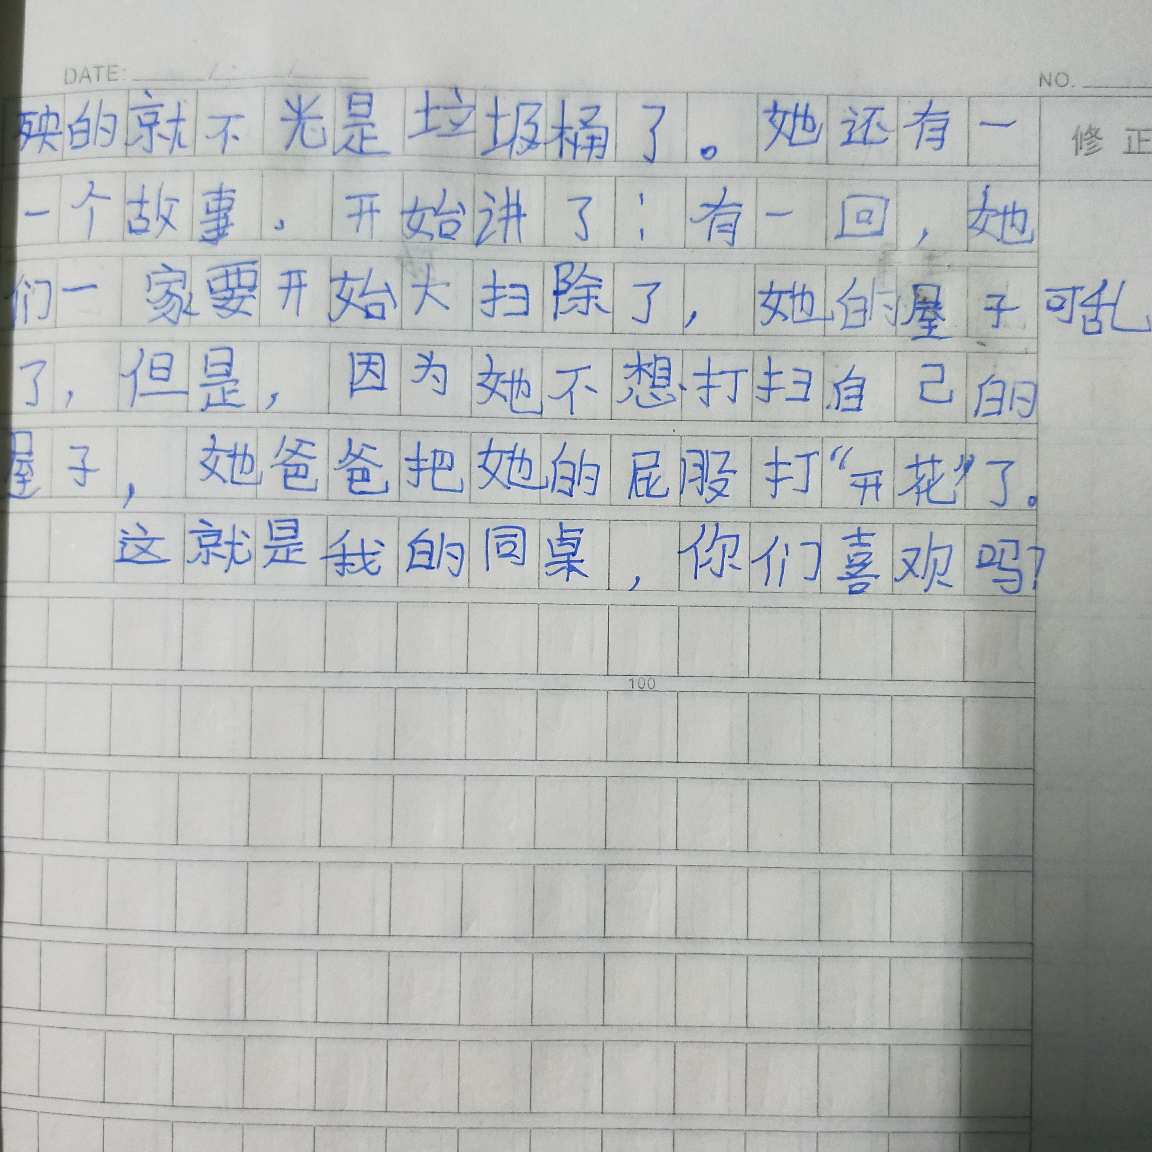 DATE: NO.
殃的就不光是垃圾桶了。她还有一
修正
一个故事。开始讲了：有一回，她
们一家要开始大扫除了，她的屋子可乱
了，但是，因为她不想打扫自己的
屋子，她爸爸把她的屁股打“开花”了。
这就是我的同桌，你们喜欢吗？
100